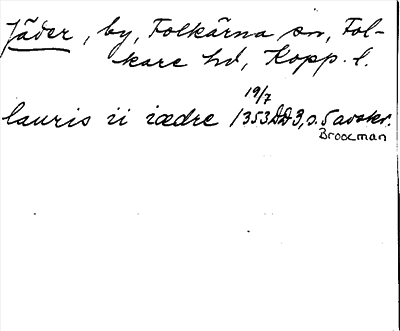 Jäder, by, Folkärna sn, Fol-
kare hd, Kopp. l.
19/7
lauris ii iædre 1353 DD3, s. 5 avskr.
Broocman